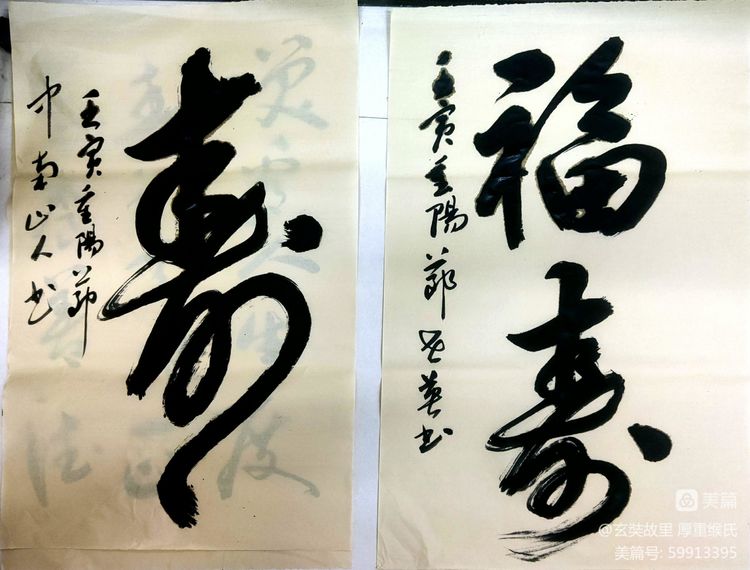 寿
壬寅重陽節
中南山人书
福寿
壬寅重陽節英书
美篇
@玄奘故里 厚重缑氏
美篇号: 59913395